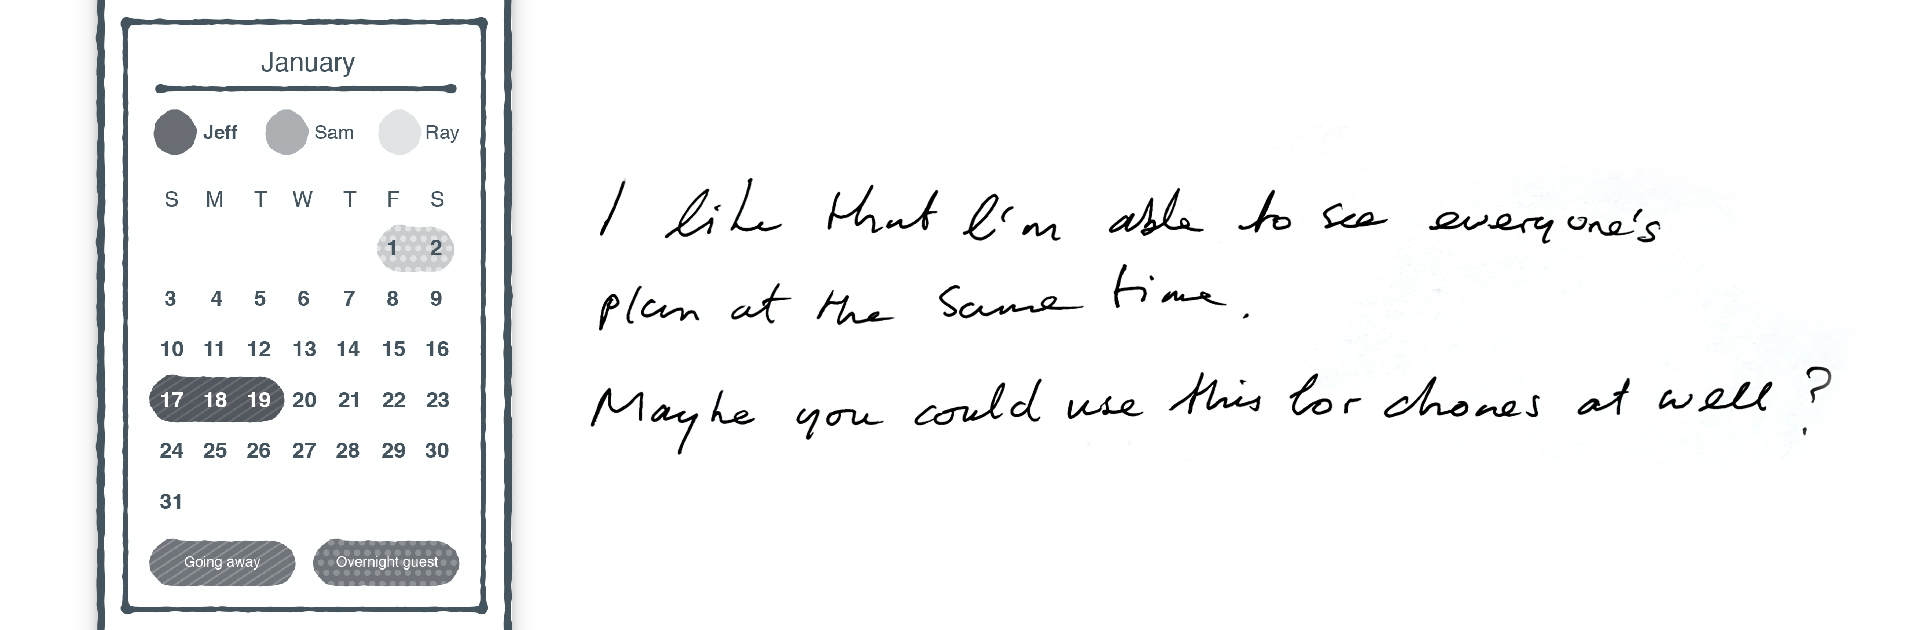 January
Jeff Sam Ray
S M T W T F S
1 2
3 4 5 6 7 8 9
10 11 12 13 14 15 16
17 18 19 20 21 22 23
24 25 26 27 28 29 30
31
Going away Overnight guest
I like that I'm able to see everyone's
plan at the same time.
Maybe you could use this for chores at well?